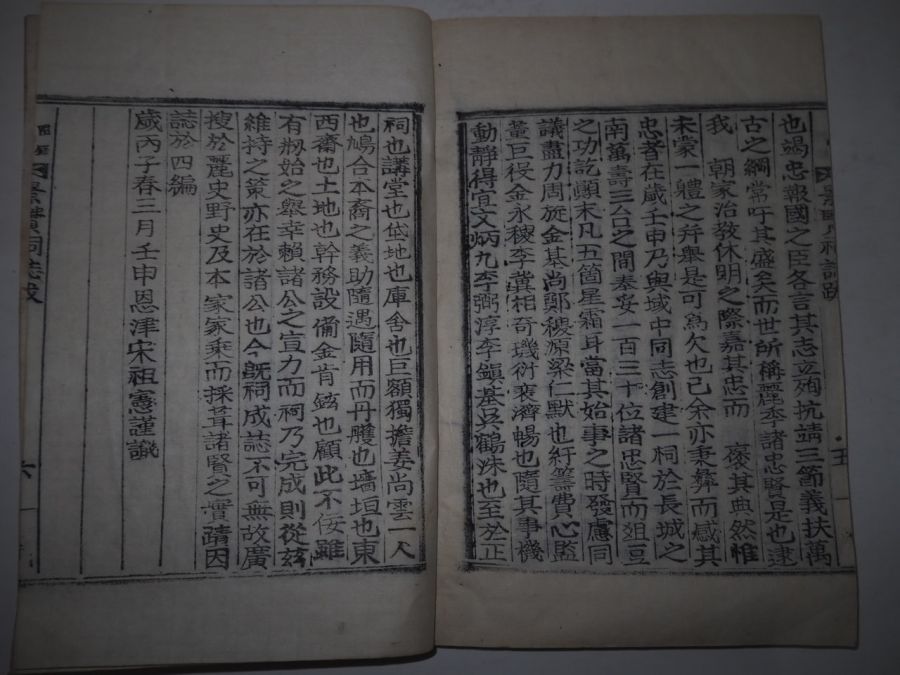 也竭忠報國之臣各言其志立殉抗靖三節義扶萬
古之綱常吁其盛矣而世所稱麗李諸忠賢是也逮
我　朝家治敎休明之際嘉其忠而　褒其典然惟
未蒙一軆之幷擧是可爲欠也已余亦秉彜而感其
忠者在歲壬申乃與域中同志創建一祠於長城之
南萬壽三台之間奉妥一百三十位諸忠賢而俎豆
之功訖顚末凡五箇星霜耳當其始事之時發慮同
議盡力周旋金基尚鄭稷源梁仁默也紆籌費心監
董巨役金永稷李冀相奇璣衍裵濟暢也隨其事機
動靜得宜文炳九李弼淳李鎭基吳鶴洙也至於正
祠也講堂也垈地也庫舍也巨額獨擔姜尚雲一人
也鳩合本裔之義助隨遇隨用而丹雘也墻垣也東
西齋也土地也幹務設備金肯鉉也顧此不侫雖
有刱始之擧幸賴諸公之宣力而祠乃完成則從玆
維持之策亦在於諸公也今旣祠成誌不可無故廣
搜於麗史野史及本家家乘而採葺諸賢之實蹟因
誌於四編
歲丙子春三月壬申恩津宋祖憲謹識
景賢祠誌跋
五
六